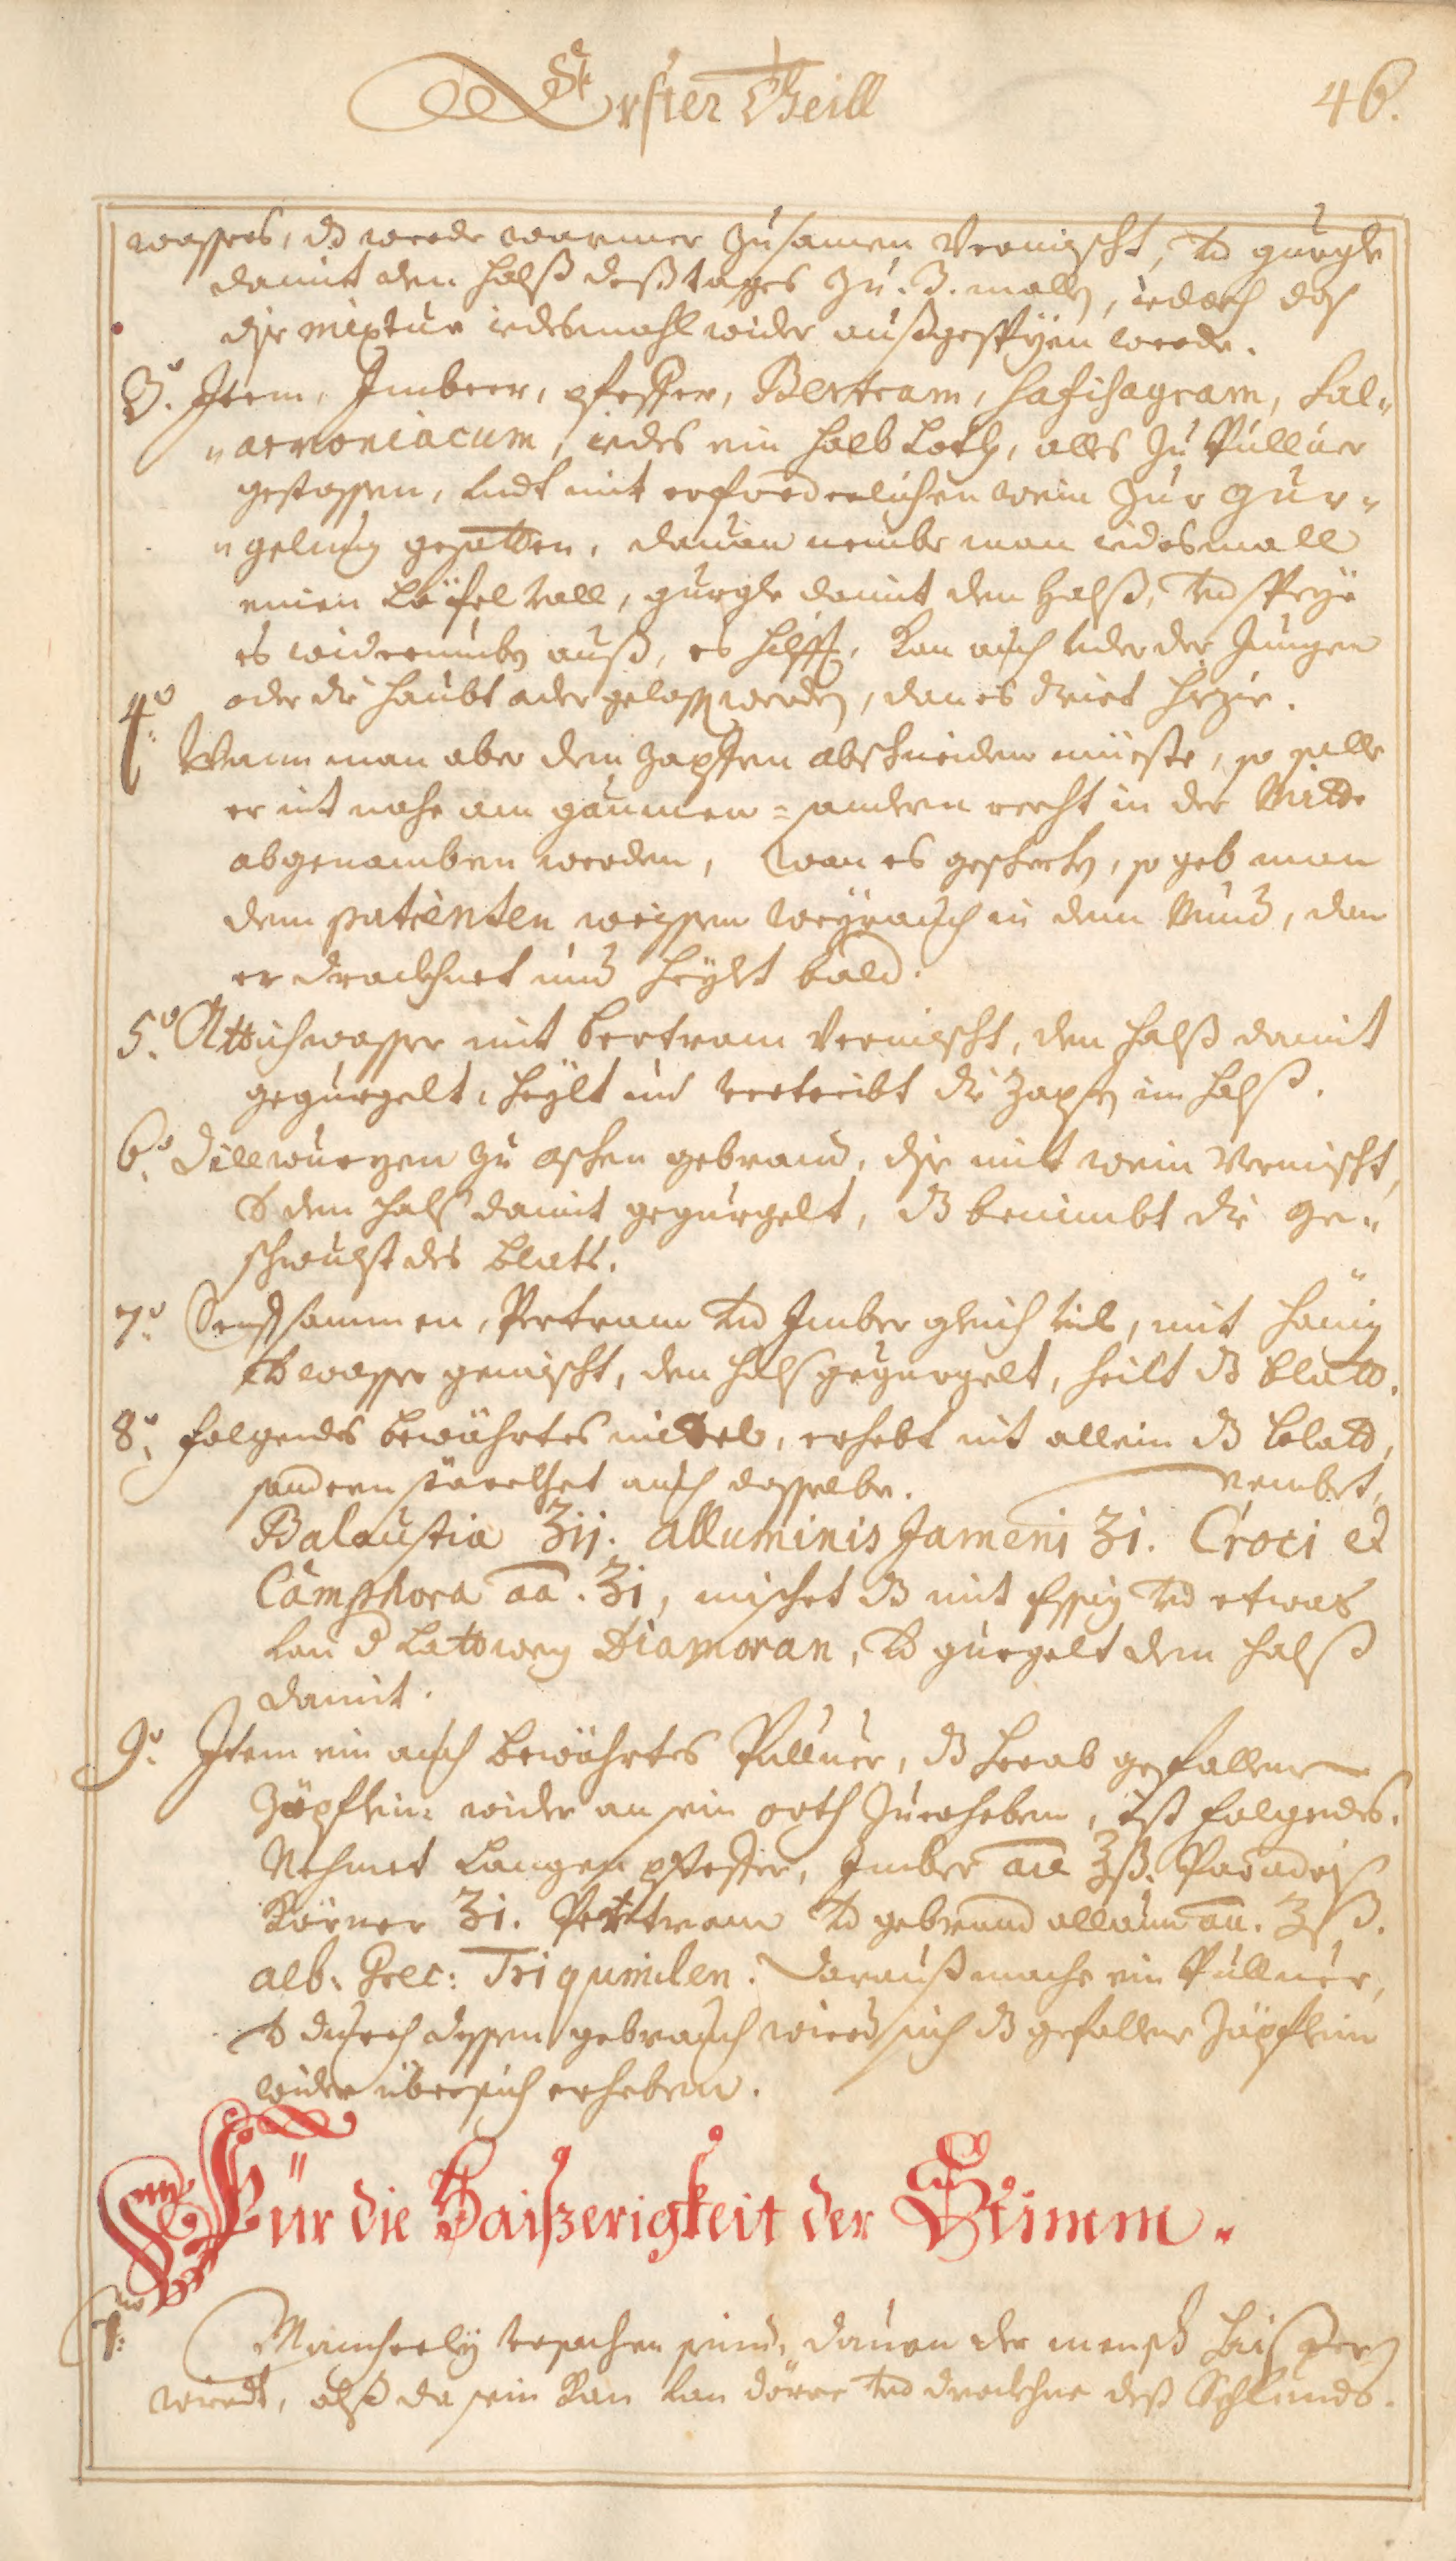 Erster Theill
46.
wassers, dß werde warmer zusamen Vermischt, vnd gurgle
damit den Halß deß tages zu. 3. mallen, iedoch daß
dise mixtur iedesmahl wider außgespÿen werde.
3.º Item, Imbeer, pfeffer, Bertram, Hafisagram, Sal-
-armoniacum, iedes ein halb Loth, alles zu Pulluer
gestossen, sudt mit erforderlichen wein zur gur-
-gelung gesotten, dauon nembe man iedesmall
einen Löfel voll, gurgle damit den Halß, vnd speÿe
es widerumben auß, es hilfft, kan auch vnder der Zungen
oder die haubt ader gelassen werden, dan es dient hezie.
4.º Wann man aber den Zapffen abschneiden müeste, so solle
er nit nahe am gaumen = sondern recht in der Mitte
abgenomben werden, wan es geschechen, so geb man
dem patienten weissen Weÿrauch in den Mund, dan
er drockhnet und heÿlt bald.
5.º Attichwasser mit bertram Vermischt, den Halß damit
gegurgelt, heÿlt und vertreibt die Zapfen im Halß.
6.º Dillwurzen zu aschen gebrand, dise mit wein Vermischt,
vnd den Halß damit gegurgelt, dß benimbt die ge-
schwulst des blats.
7.º Senffsammen, Pertram vnd Imber gleich vil, mit hönig
vnd wasser gemischt, den Halß gegurgelt, heilt dß blatt.
8.º Folgendes bewährtes mittel, erhebt nit allein dß blatt,
sondern störckhet auch dasselbe. Nembet,
Balaustia ʒij. Alluminis Jameni ʒi. Croci et
Camphora aa. ʒi, mischet dß mit Essig vnd etwas
von d Lattwerg Diamoran, vnd gurgelt den Halß
damit.
9.º Item ein auch bewährtes Pulluer, dß herab gefallene
Zäpflein wider an sein orth zuerheben, ist folgendes.
Nehmet Langen pfeffer, Imber aa ʒß. Paradeiß
Körner ʒi. Pertram vnd gebrand allaun aa. ʒß.
alb: Grec: Triquinilen. Darauß mache ein Pulluer,
vnd durch dessen gebrauch wird sich dß gefallene Zäpflein
wider übersich erheben.
Für die Haißerigkeit der Stimm.
1.mo Mancherleÿ vrsachen seind, dauon der mensch haißer
wirdt, alß da sein kan von dörre vnd dröckhne deß Schlunds.